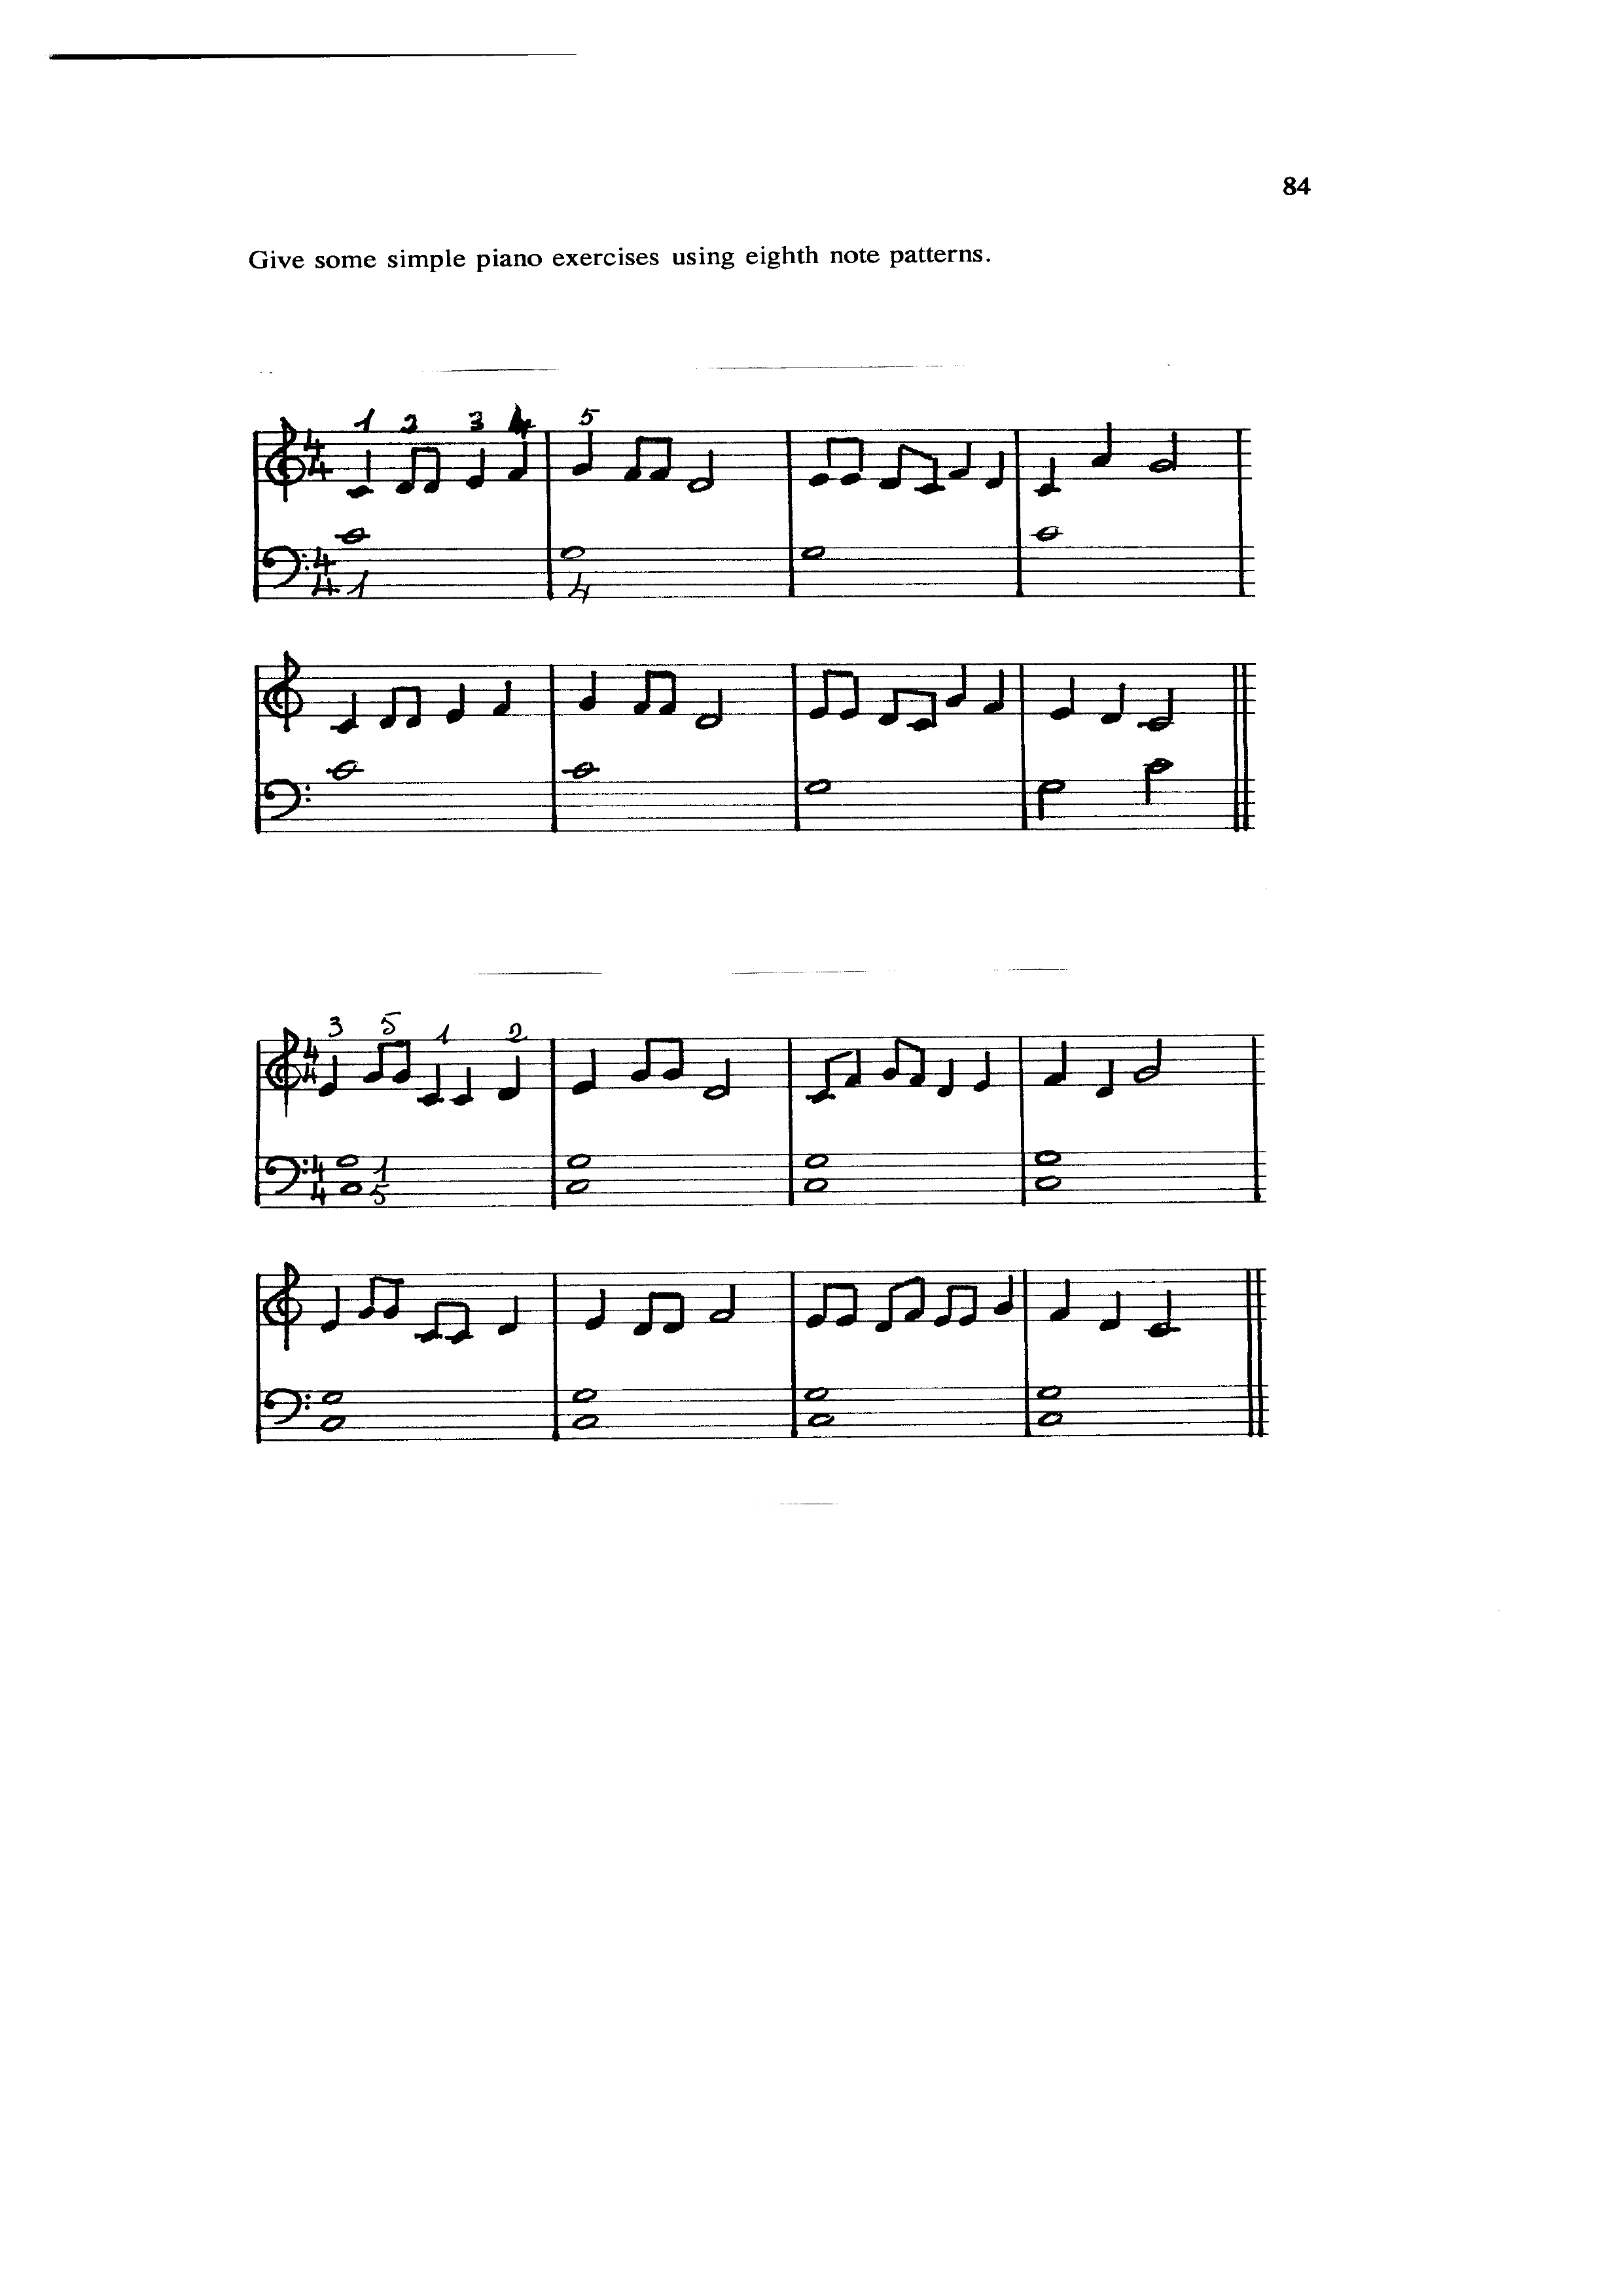 84
Give some simple piano exercises using eighth note patterns.
1 2 3 4 5
4
4
4
4 1 4
3 5 1 2
4
4
4 1
4 5